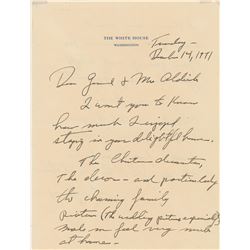 THE WHITE HOUSE
WASHINGTON
Tuesday -
14, 1971
Dear & Mrs Aldrich
I want you to know
how much I enjoyed
staying in your delightful home.
The
the decor - and particularly
the charming family
pictures (The wedding picture especially)
made me feel very much
at home -